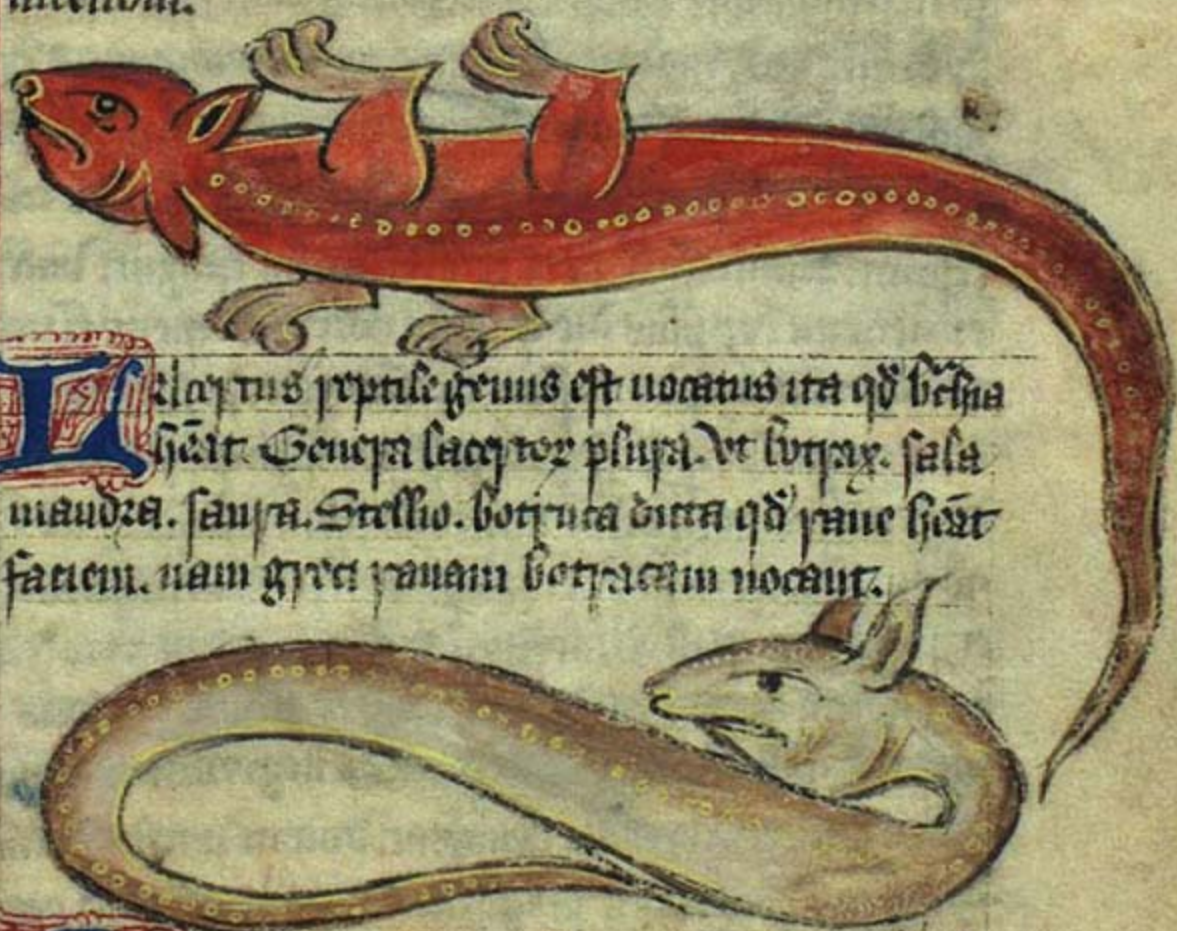 Lacertus reptile genus est uocatus ita qd̛ bᵃchia
hēat. Genera lacertoꝝ plura. Vt botrax. sala
mandra. saura. Stellio. botruca dicta qd̛ rane hēat
faciem. nam greci ranam botracam uocant.